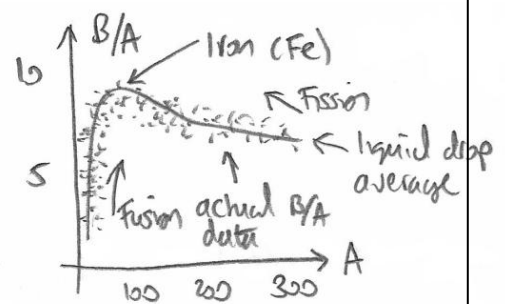 B/A
Iron (Fe)
10
Fission
liquid drop
average
5
Fusion
actual B/A
data
A
100
200
300